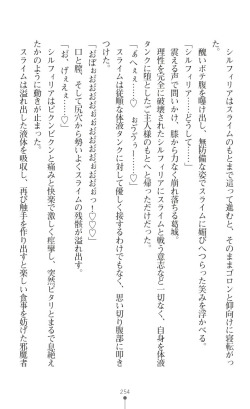 シルフィリアはスライムのもとまで這って進むと、そのままゴロンと仰向けに寝転がった。
醜いボテ腹を曝け出し、無防備な姿でスライムに媚びへつらった笑みを浮かべる。
「シルフィリア……どうして……」
震える声で問いかけ、膝から力なく崩れ落ちる葛城。
理性を完全に破壊されたシルフィリアにスライムと戦う意志など一切なく、自身を体液
タンクに堕としたご主人様のもとへと帰っただけだった。
「あへぇぇ……♡　おうぅぅー……♡」
スライムは従順な体液タンクに対して優しく接するわけでもなく、思い切り腹部に叩き
つけた。
「おぼぉおおおおおおおおおおおおおぉぉっー！♡♡♡」
口と膣、そして尻穴から勢いよくスライムの残骸が溢れ出す。
「お、げぇえぇ……♡」
シルフィリアはピクンピクンと痛みと快楽で激しく痙攣し、突然ピタリとまるで息絶え
たかのように動きが止まった。
スライムは溢れ出した液体を吸収し、再び触手を作り出すと楽しい食事を妨げた邪魔者
254